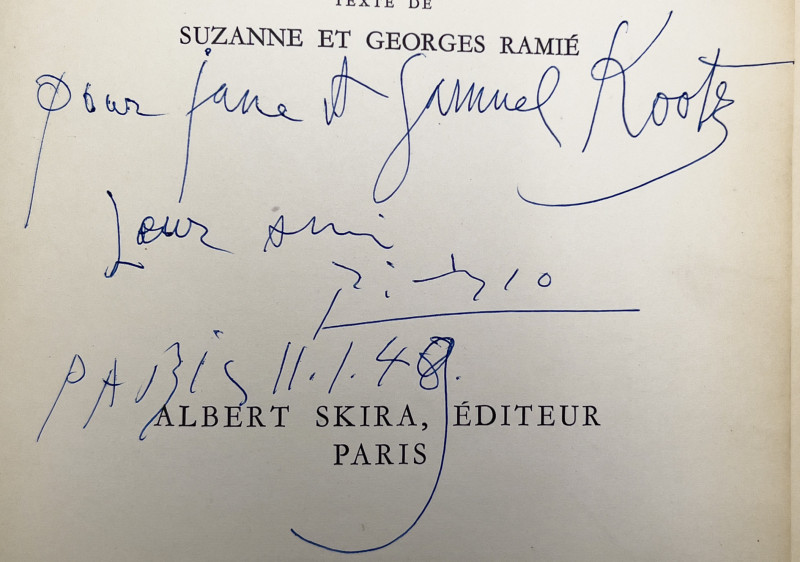 TEXTE DE
SUZANNE ET GEORGES RAMIÉ
pour jane et Samuel Kootz
Leur ami
Picasso
PARIS 11.1.49.
ALBERT SKIRA, ÉDITEUR
PARIS